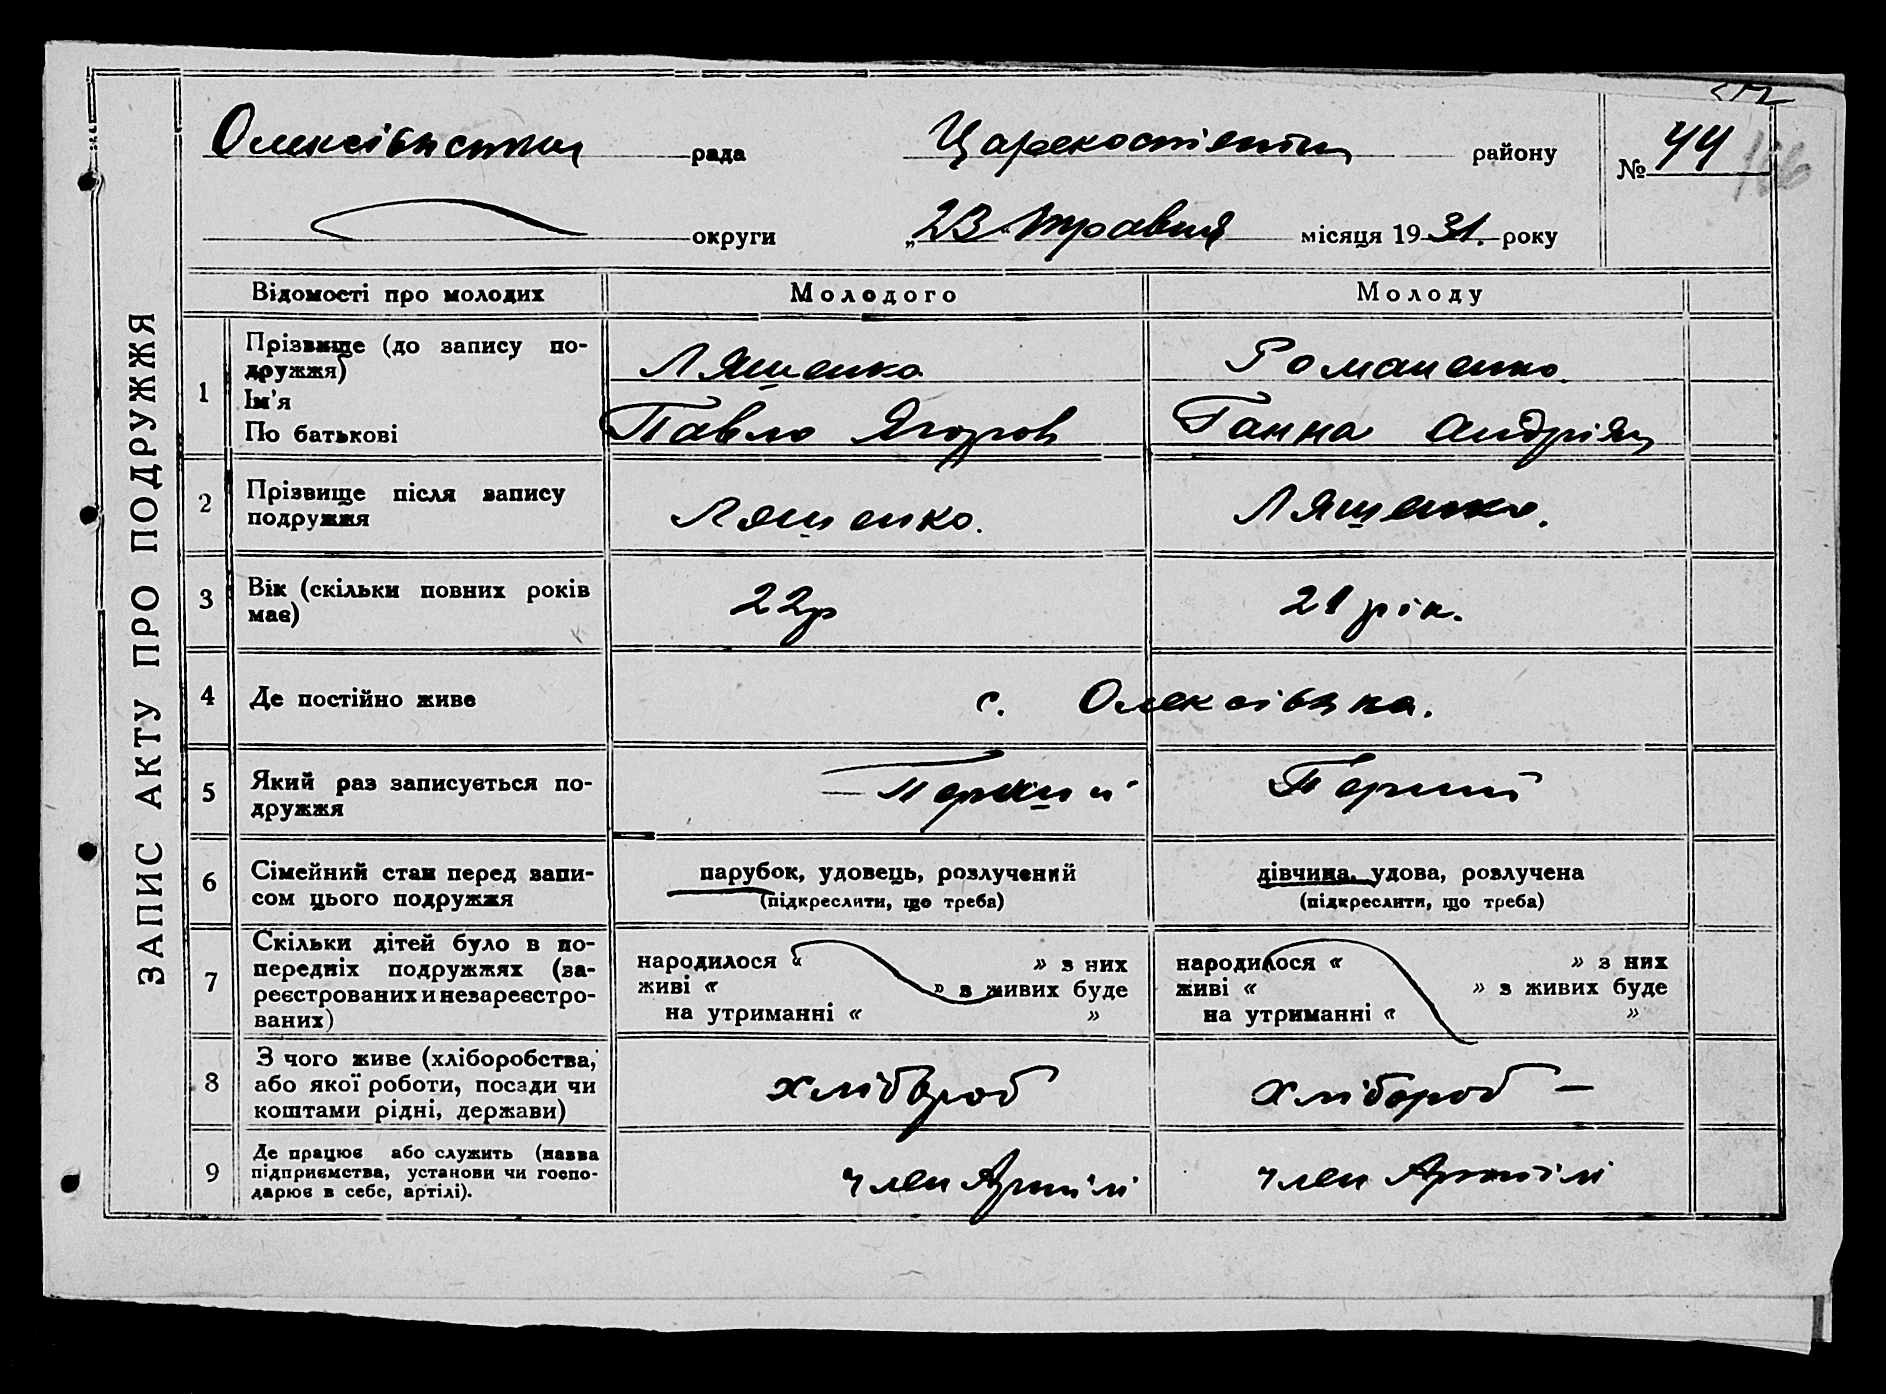 ЗАПИС АКТУ ПРО ПОДРУЖЖЯ
Олексіївська рада
Царекостянтин району
№ 44
166
округи
„23“ травня місяця 1931. року
Відомості про молодих
Молодого
Молоду
1
Прізвище (до запису по-
дружжя)
Ім'я
По батькові
Ляшенко
Павло Ягоров
Романенко
Ганна Андріян
2
Прізвище після запису
подружжя
Ляшенко.
Ляшенко.
3
Вік (скільки повних років
має)
22р
21 рік.
4
Де постійно живе
с. Олексіївка.
5
Який раз записується по-
дружжя
Перший
Перший
6
Сімейний стан перед запи-
сом цього подружжя
парубок, удовець, розлучений
(підкреслити, що треба)
дівчина, удова, розлучена
(підкреслити, що треба)
7
Скільки дітей було в по-
передніх подружжях (за-
реєстрованих и незареєстро-
ваних)
народилося « » з них
живі « » з живих буде
на утриманні « »
народилося « » з них
живі « » з живих буде
на утриманні « »
8
З чого живе (хліборобства,
або якої роботи, посади чи
коштами рідні, держави)
хлібороб
хлібороб –
9
Де працює або служить (назва
підприємства, установи чи госпо-
дарює в себе, артілі).
член Артілі
член Артілі